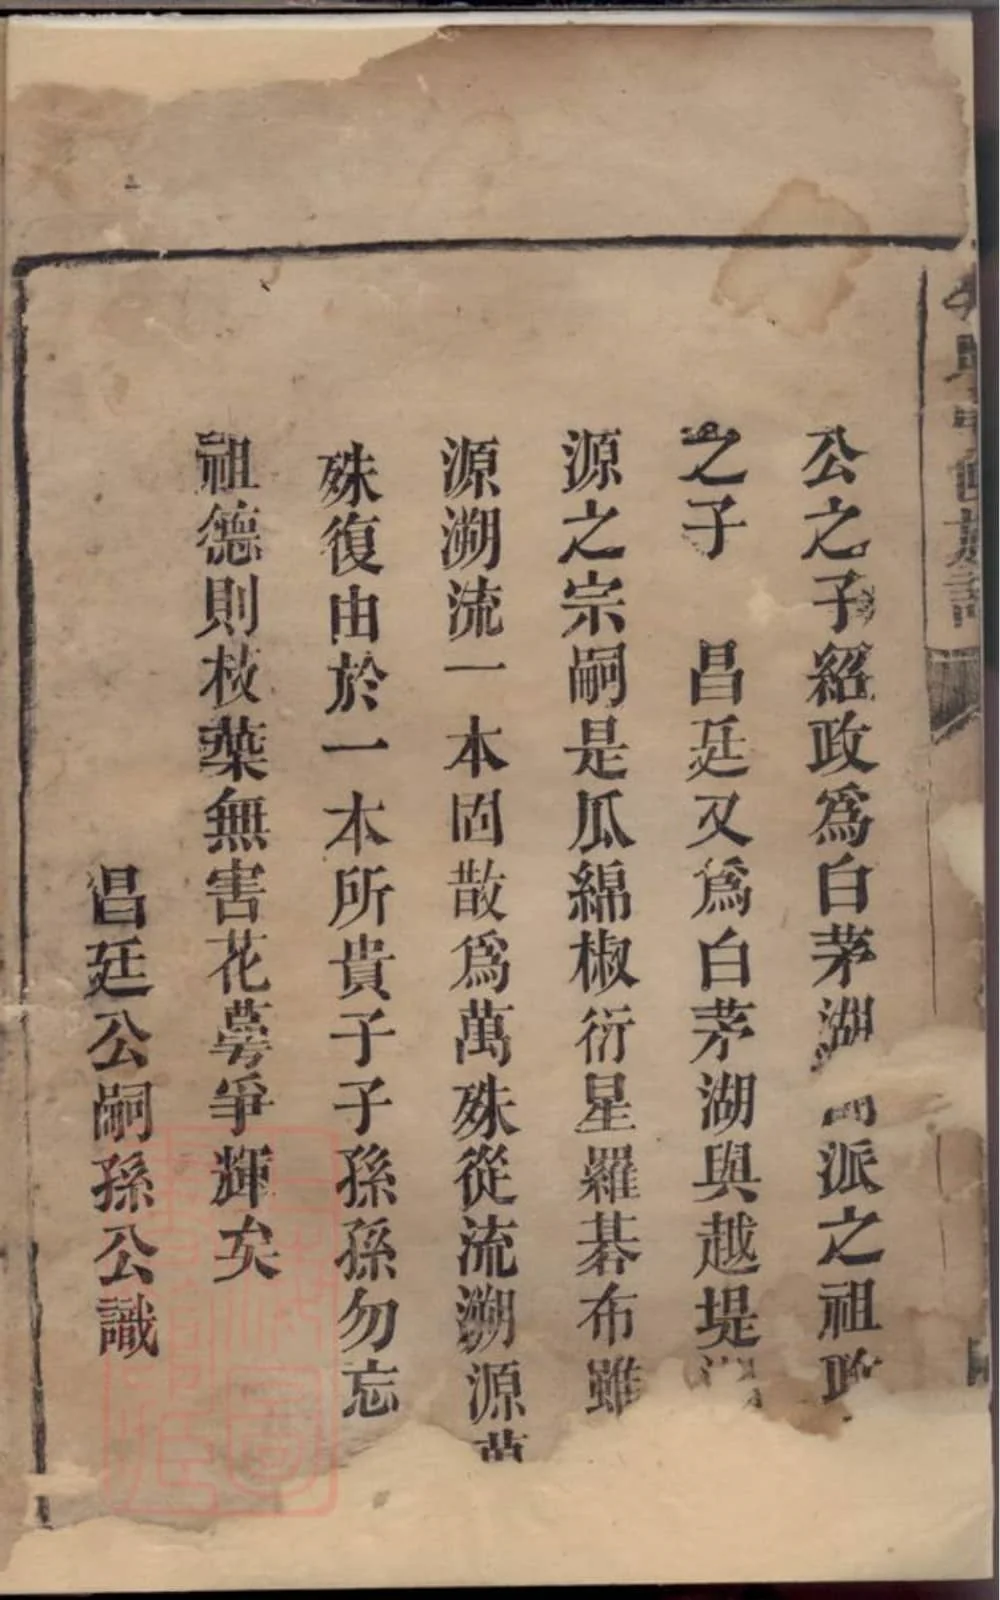 公之子紹政爲白茅湖派之祖政
之子　昌廷又爲白茅湖與越堤
源之宗嗣是瓜綿椒衍星羅碁布雖
源溯流一本固散爲萬殊從流溯源萬
殊復由於一本所貴子子孫孫勿忘
祖德則枝葉無害花萼爭輝矣
昌廷公嗣孫公識